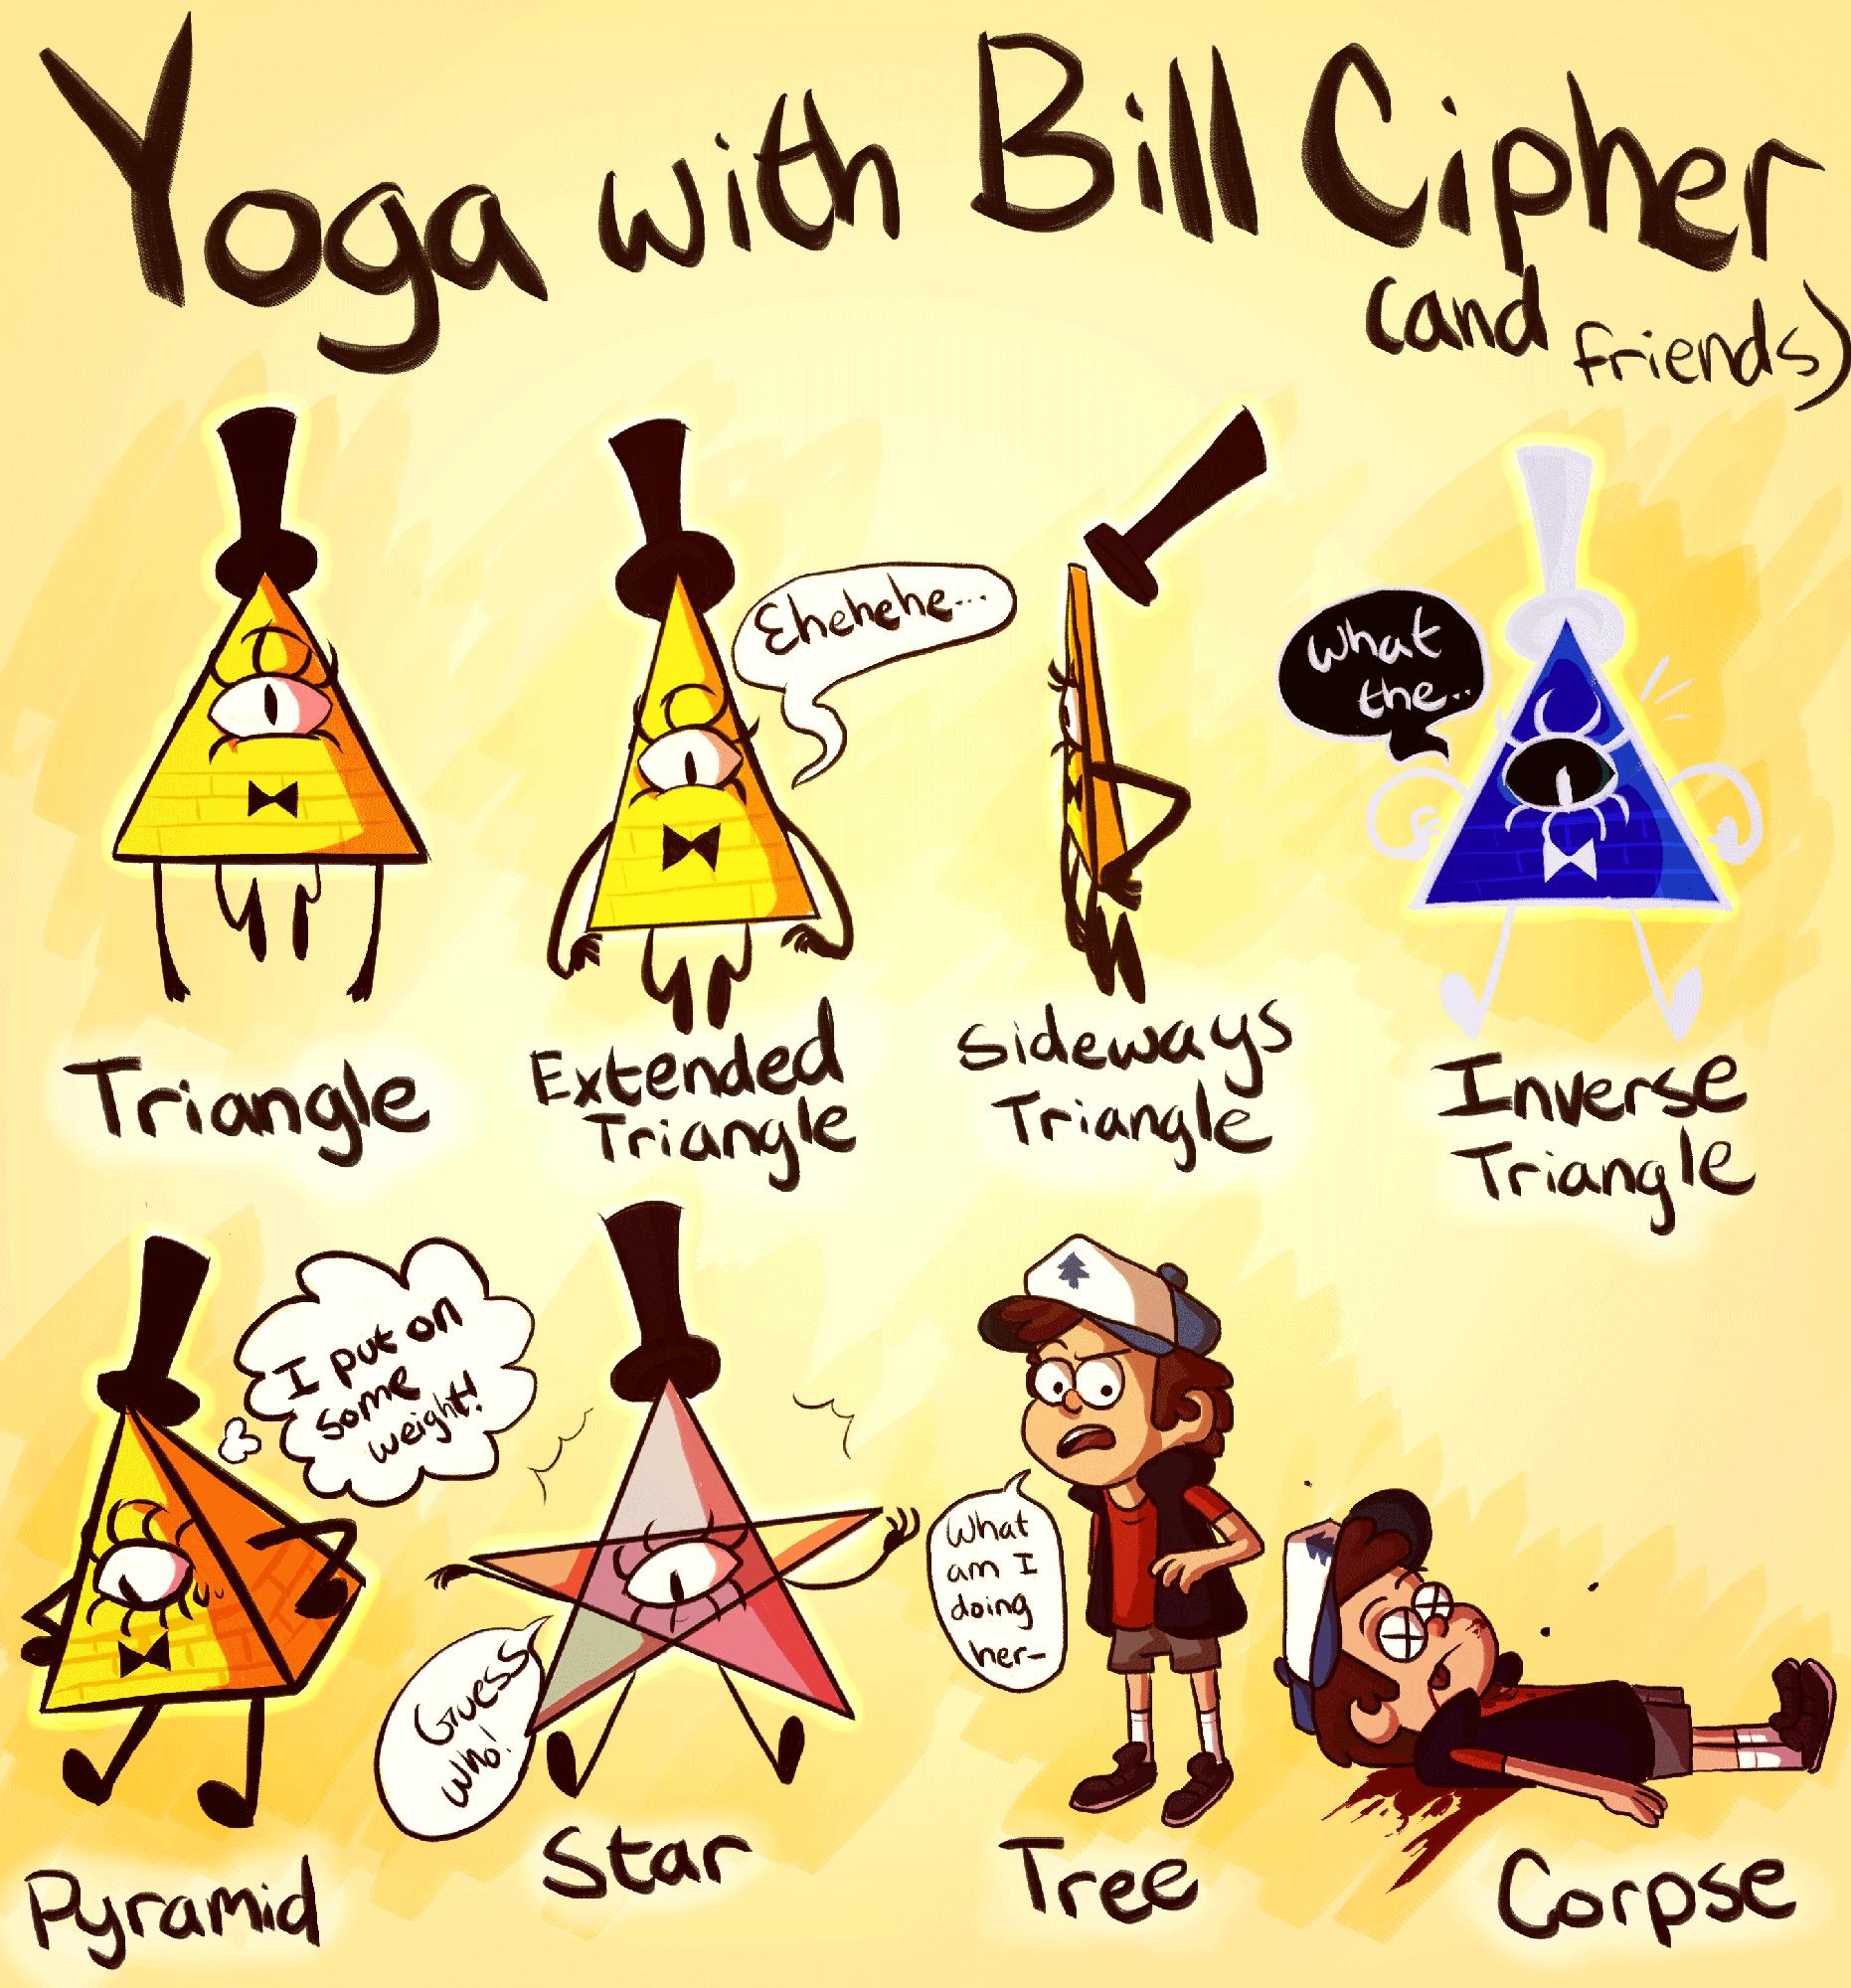 Yoga with Bill Cipher
(and friends)
Ehehehe...
What
the..
Triangle
Extended
Triangle
Sideways
Triangle
Inverse
Triangle
I put on
some
weight!
Guess
who!
What
am I
doing
her-
Pyramid
Star
Tree
Corpse